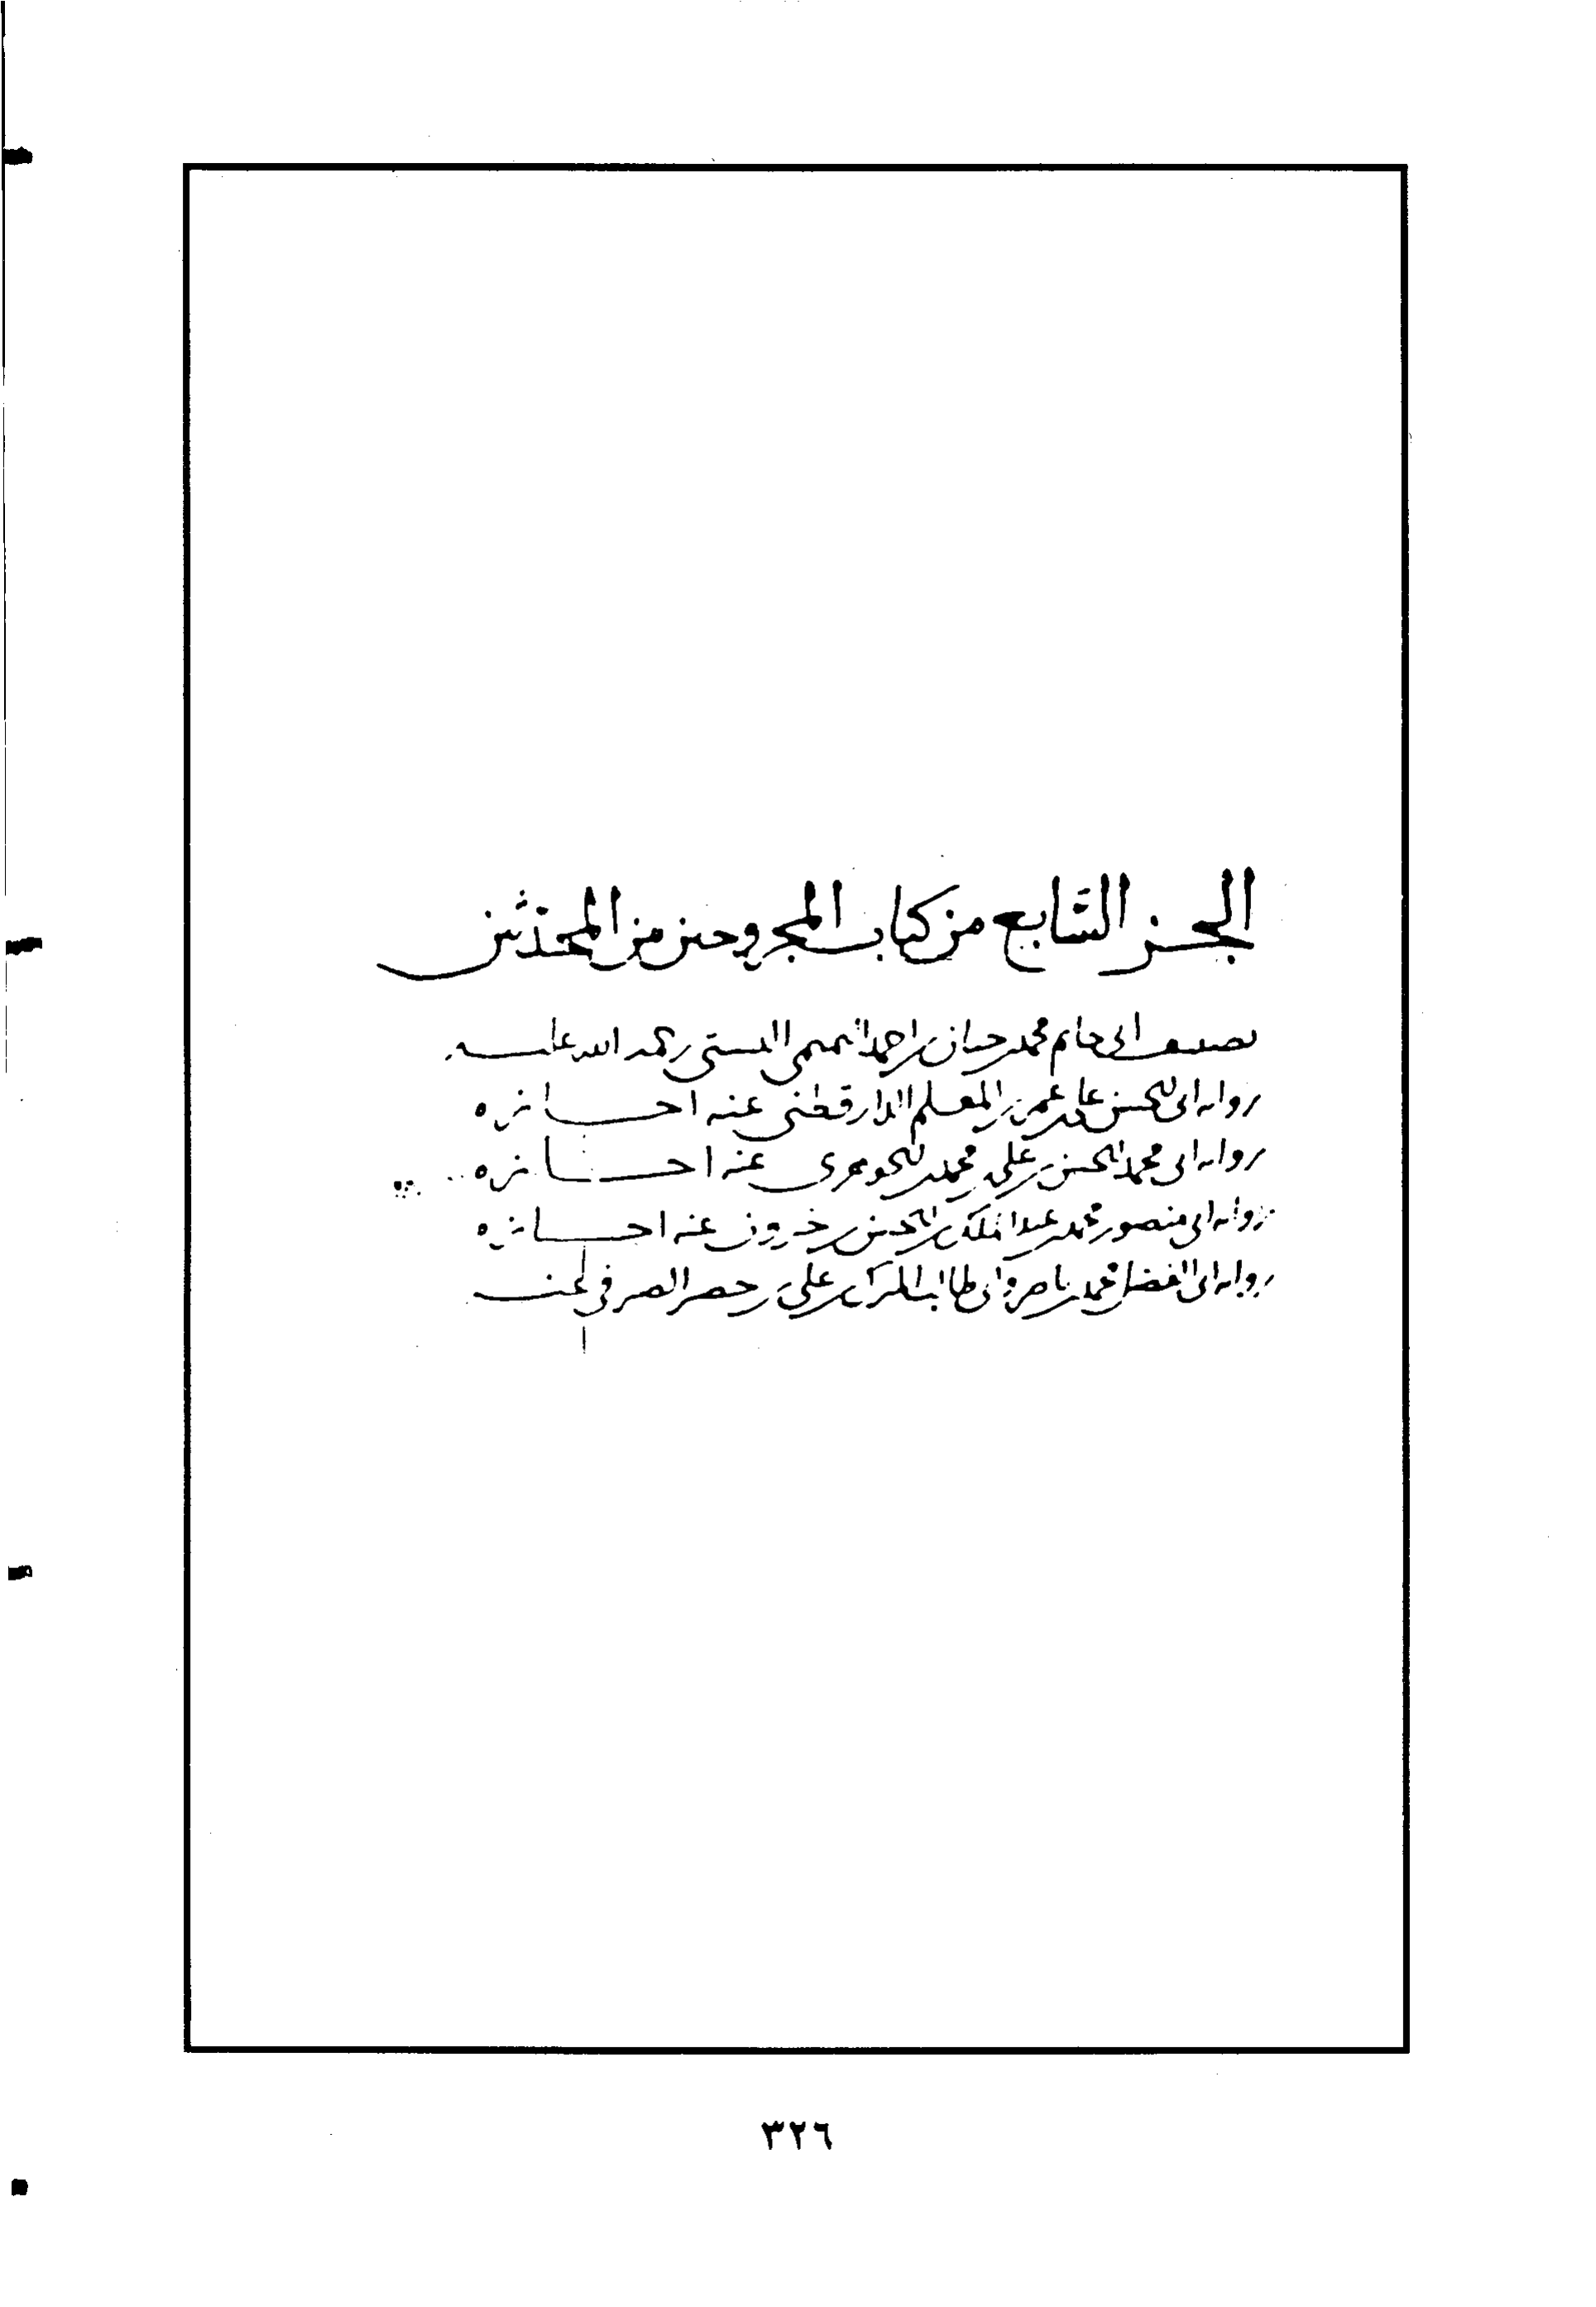 الجز السّابع من كتاب المجروحين من المحدّثين
تصنيف ابي حاتم محمد بن حبان بن احمد التميمي البستي رحمه الله عليه
روايه ابي الحسن علي بن عمر الدارقطني عنه اجازه
روايه ابي محمد الحسن بن علي بن محمد الجوهري عنه اجازه
روايه ابي منصور محمد بن عبد الملك بن الحسن بن خيرون عنه اجازه
روايه ابي الفضل محمد بن ناصر وابي طالب المبارك بن علي بن الصيرفي عنه
٣٢٦